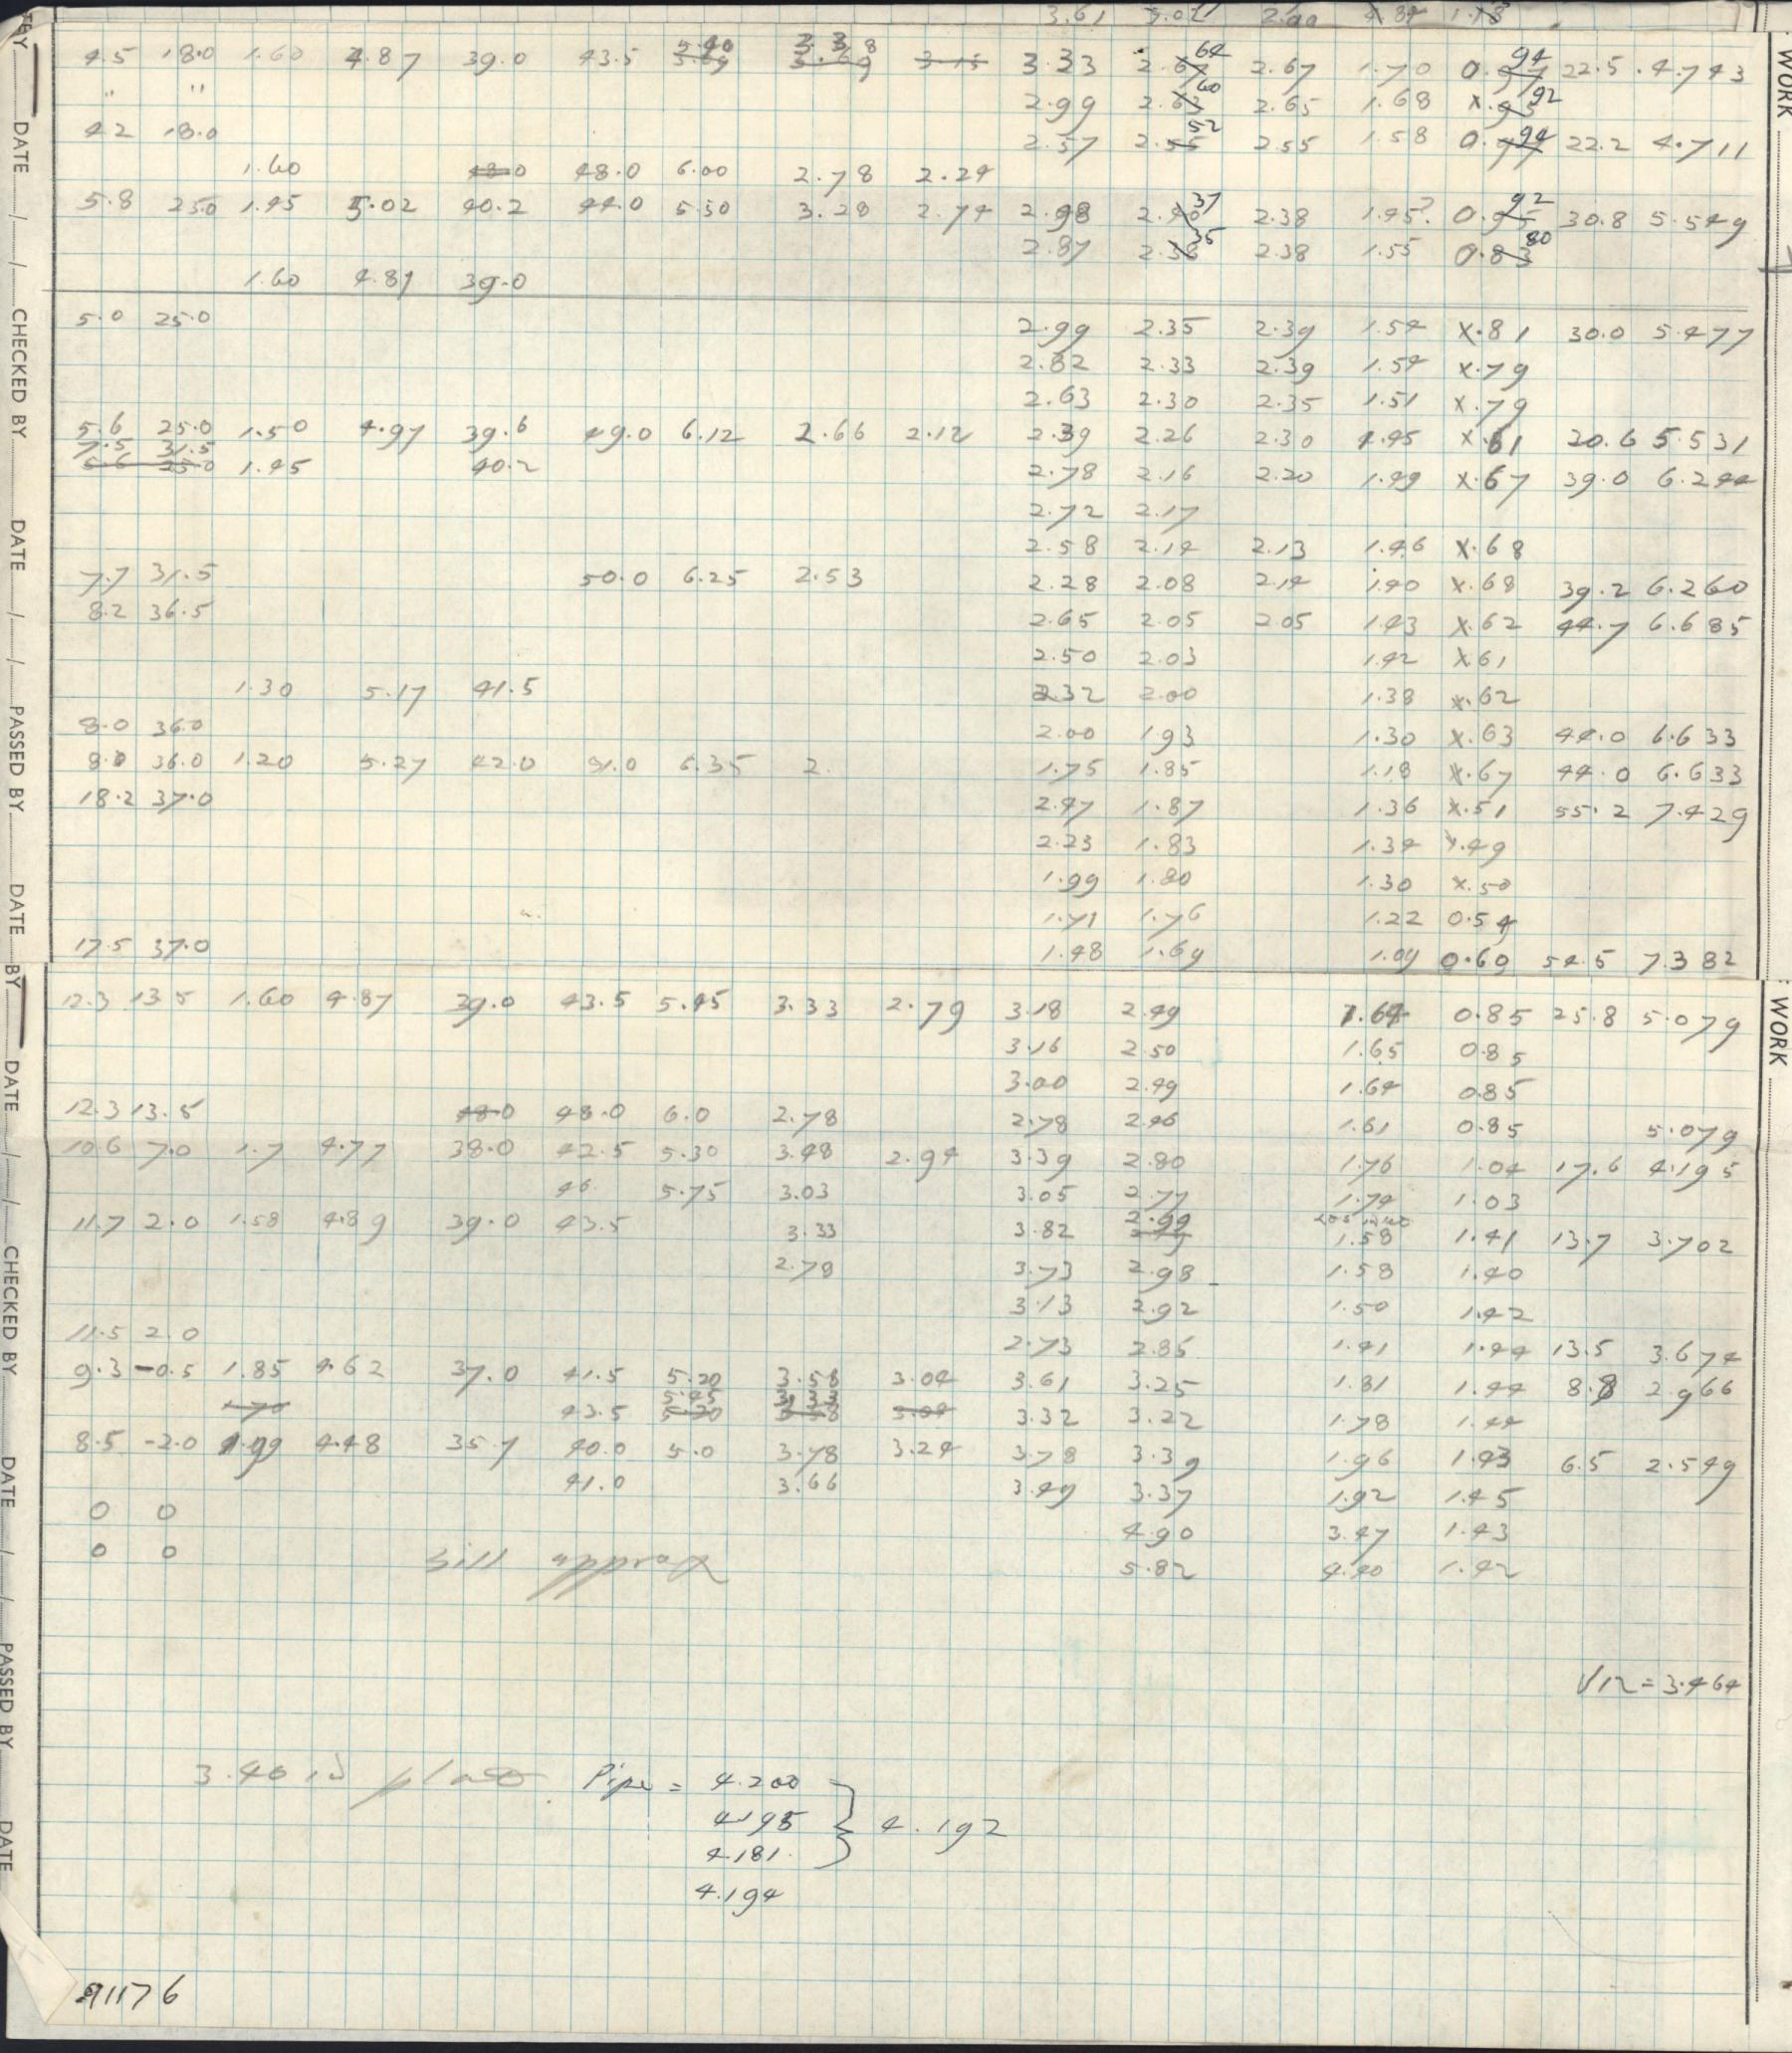 3.61 3.02 2.90 1.84 1.18
4.5 18.0 1.60 4.87 39.0 43.5 5.40 3.38 3.15 3.33 2.64 2.67 1.70 0.94 22.5 4.743
" " 2.99 2.60 2.65 1.68 x.92
4.2 18.0 2.57 2.52 2.55 1.58 0.94 22.2 4.711
1.60 48.0 48.0 6.00 2.78 2.24
5.8 25.0 1.45 5.02 40.2 44.0 5.50 3.28 2.74 2.98 2.37 2.38 1.45? 0.92 30.8 5.549
2.87 2.35 2.38 1.55 0.80
1.60 4.87 39.0
5.0 25.0 2.99 2.35 2.39 1.54 x.81 30.0 5.477
2.82 2.33 2.39 1.54 x.79
2.63 2.30 2.35 1.51 x.79
5.6 25.0 1.50 4.97 39.6 49.0 6.12 2.66 2.12 2.39 2.26 2.30 1.45 x.81 30.6 5.531
7.5 31.5
5.6 25.0 1.45 40.2 2.78 2.16 2.20 1.49 x.67 39.0 6.244
2.72 2.17
2.58 2.14 2.13 1.46 x.68
7.7 31.5 50.0 6.25 2.53 2.28 2.08 2.14 1.40 x.68 39.2 6.260
8.2 36.5 2.65 2.05 2.05 1.43 x.62 44.7 6.685
2.50 2.03 1.42 x.61
1.30 5.17 41.5 2.32 2.00 1.38 x.62
8.0 36.0 2.00 1.93 1.30 x.63 44.0 6.633
8.0 36.0 1.20 5.27 42.0 51.0 6.35 2. 1.75 1.85 1.18 x.67 44.0 6.633
18.2 37.0 2.47 1.87 1.36 x.51 55.2 7.429
2.23 1.83 1.34 x.49
1.99 1.80 1.30 x.50
1.71 1.76 1.22 0.54
17.5 37.0 1.48 1.69 1.09 0.60 54.5 7.382
12.3 13.5 1.60 4.87 39.0 43.5 5.45 3.33 2.79 3.18 2.49 1.64 0.85 25.8 5.079
3.16 2.50 1.65 0.85
3.00 2.49 1.64 0.85
12.3 13.5 48.0 48.0 6.0 2.78 2.78 2.46 1.61 0.85 5.079
10.6 7.0 1.7 4.77 38.0 42.5 5.30 3.48 2.94 3.39 2.80 1.76 1.04 17.6 4.195
46. 5.75 3.03 3.05 2.77 1.74 1.03
11.7 2.0 1.58 4.89 39.0 43.5 3.33 3.82 2.99 1.58 1.41 13.7 3.702
2.78 3.73 2.98 1.58 1.40
3.13 2.92 1.50 1.42
11.5 2.0 2.73 2.85 1.41 1.44 13.5 3.674
9.3 -0.5 1.85 4.62 37.0 41.5 5.20 3.58 3.04 3.61 3.25 1.81 1.44 8.8 2.966
1.70 43.5 5.45 3.33 3.04 3.32 3.22 1.78 1.44
8.5 -2.0 1.99 4.48 35.7 40.0 5.0 3.78 3.24 3.78 3.39 1.96 1.43 6.5 2.549
41.0 3.66 3.49 3.37 1.92 1.45
0 0 4.90 3.47 1.43
0 0 Sill approx 5.82 4.40 1.42
√12 = 3.464
3.40 is place. Pipe = 4.200
4.195 } 4.192
4.181
4.194
91176
BY DATE CHECKED BY DATE PASSED BY DATE
BY DATE CHECKED BY DATE PASSED BY DATE
WORK
WORK